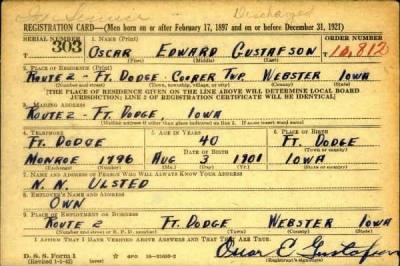 Discharged
REGISTRATION CARD—(Men born on or after February 17, 1897 and on or before December 31, 1921)
SERIAL NUMBER 1. NAME (Print) ORDER NUMBER
303 OSCAR EDWARD GUSTAFSON 10,812
(First) (Middle) (Last)
2. PLACE OF RESIDENCE (Print)
ROUTE 2 - FT. DODGE - COOPER TWP. WEBSTER IOWA
(Number and street) (Town, township, village, or city) (County) (State)
[THE PLACE OF RESIDENCE GIVEN ON THE LINE ABOVE WILL DETERMINE LOCAL BOARD
JURISDICTION; LINE 2 OF REGISTRATION CERTIFICATE WILL BE IDENTICAL]
3. MAILING ADDRESS
ROUTE 2 - FT. DODGE, IOWA
[Mailing address if other than place indicated on line 2. If same insert word same]
4. TELEPHONE 5. AGE IN YEARS 6. PLACE OF BIRTH
FT. DODGE 40 FT. DODGE
DATE OF BIRTH (Town or county)
MONROE 1796 AUG 3 1901 IOWA
(Exchange) (Number) (Mo.) (Day) (Yr.) (State or country)
7. NAME AND ADDRESS OF PERSON WHO WILL ALWAYS KNOW YOUR ADDRESS
N. N. ULSTED
8. EMPLOYER'S NAME AND ADDRESS
OWN
9. PLACE OF EMPLOYMENT OR BUSINESS
ROUTE 2 FT. DODGE WEBSTER IOWA
(Number and street or R. F. D. number) (Town) (County) (State)
I AFFIRM THAT I HAVE VERIFIED ABOVE ANSWERS AND THAT THEY ARE TRUE.
D. S. S. Form 1
(Revised 1-1-42) GPO 16—21630-2
Oscar E. Gustafson
(Registrant's signature)